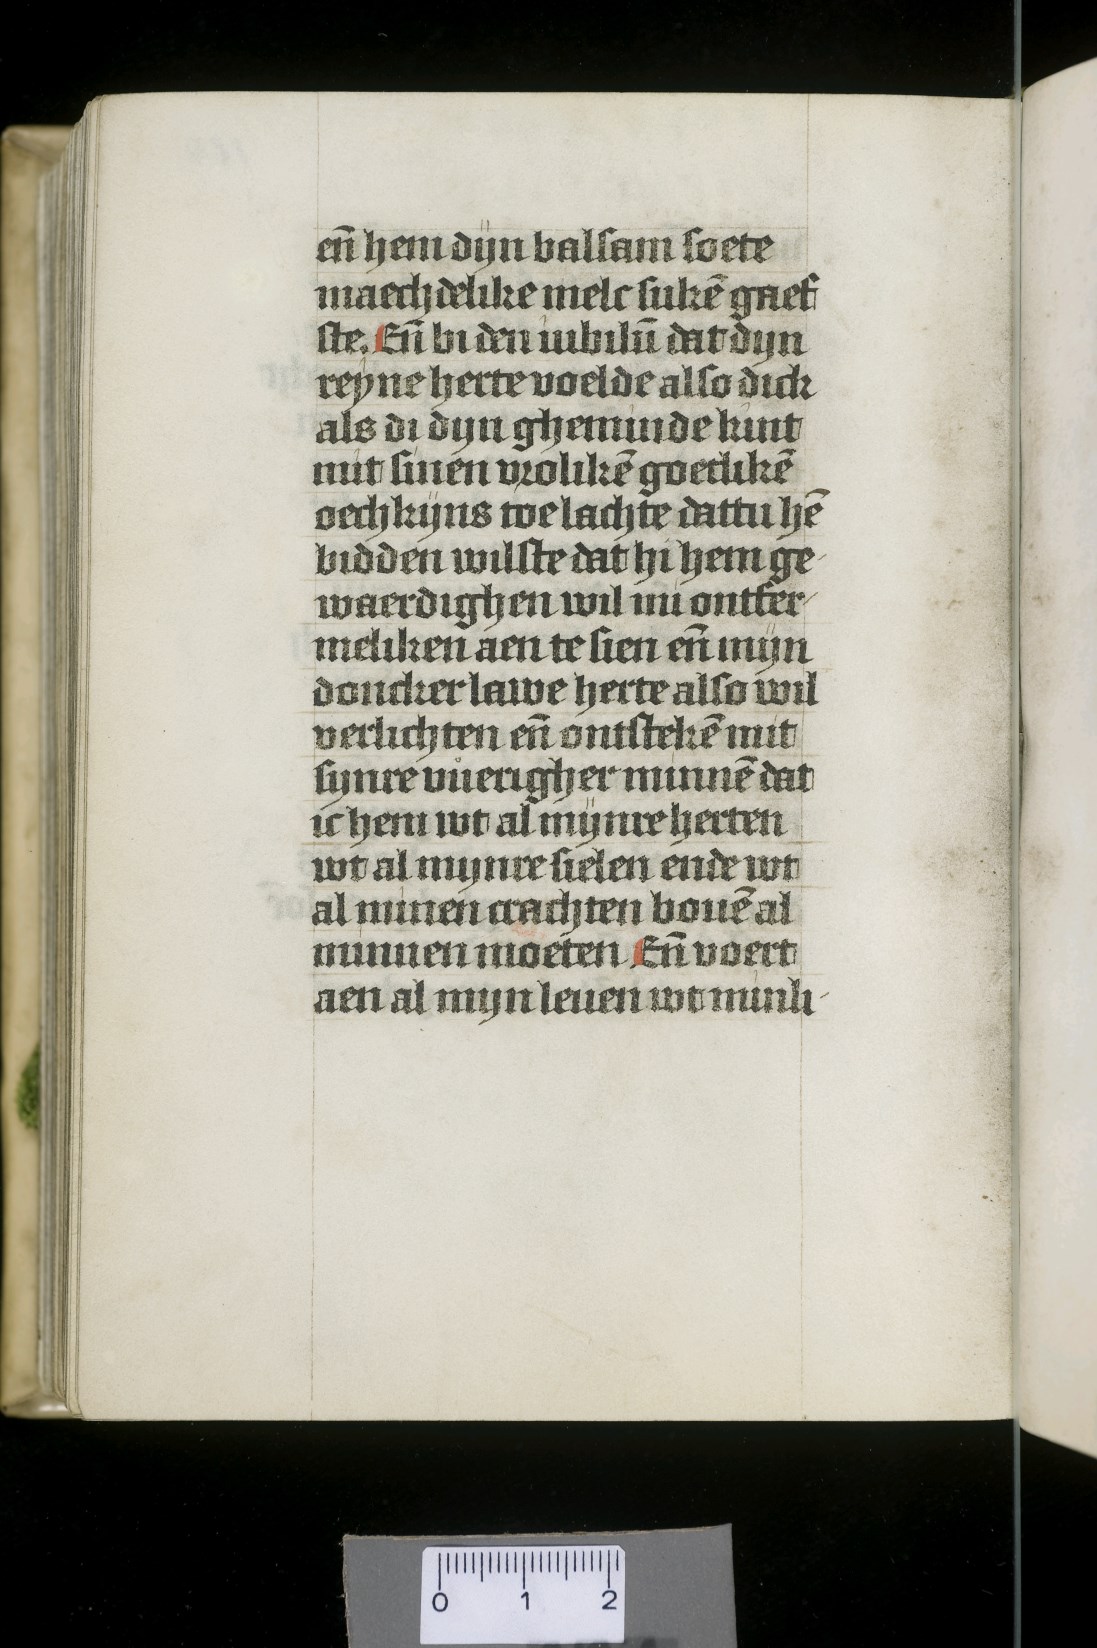 en̄ hem dijn balsam soete
maechdelike melc sukē gaef
ste. En̄ bi den iubilū dat dyn
reyne herte voelde also dick
als di dyn gheminde kint
mit sinen vrolikē goetlikē
oechkijns toe lachte dattu hē
bidden wilste dat hi hem ge
waerdighen wil mi ontfer
meliken aen te sien en̄ mijn
doncker lawe herte also wil
verlichten en̄ ontstekē mit
synre vuerigher minnē dat
ic hem wt al mijnre herten
wt al mynre sielen ende wt
al minen crachten bouē al
minnen moeten. En̄ voert
aen al myn leuen wt minli
0 1 2